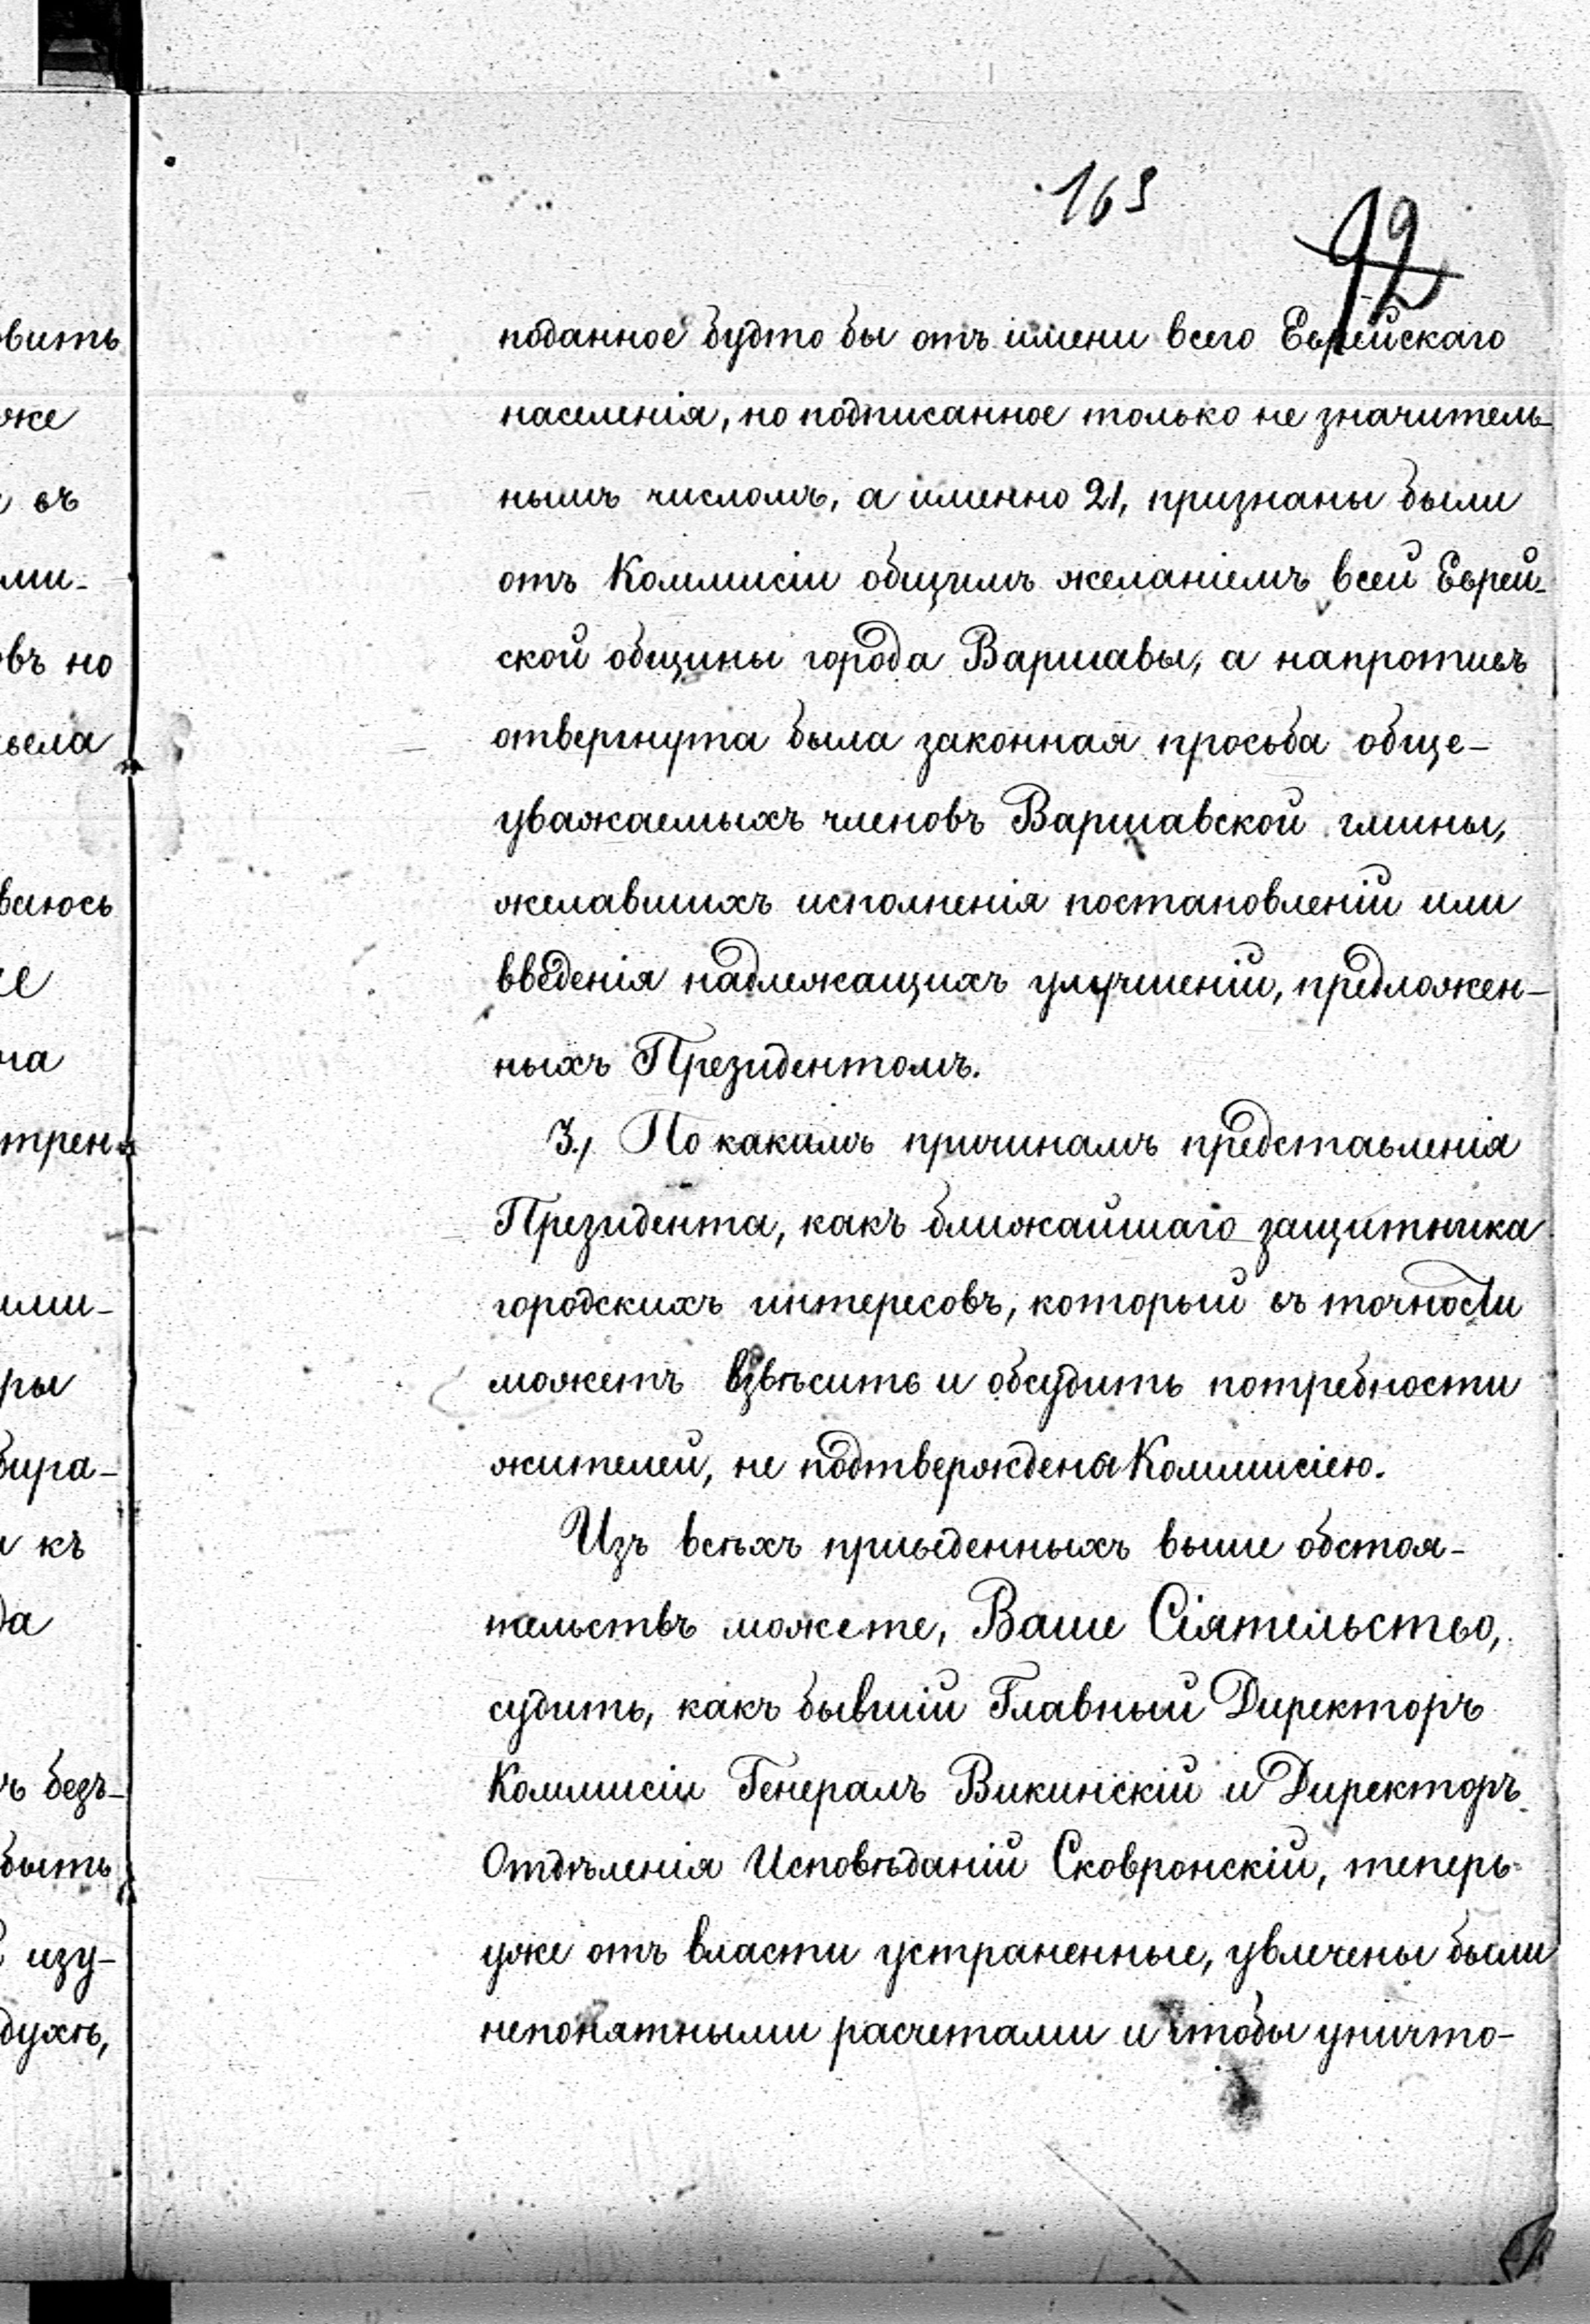 163
92
поданное будто бы отъ имени всего Еврейскаго
населенія, но подписанное только не значитель-
нымъ числомъ, а именно 21, признаны были
отъ Коммисіи общимъ желаніемъ всей Еврей-
ской общины города Варшавы, а напротивъ
отвергнута была законная просьба обще-
уважаемыхъ членовъ Варшавской гмины,
желавшихъ исполненія постановленій или
введенія надлежащихъ улучшеній, предложен-
ныхъ Президентомъ.
3./ По какимъ причинамъ представленія
Президента, какъ ближайшаго защитника
городскихъ интересовъ, который въ точности
можетъ взвѣсить и обсудить потребности
жителей, не подтверждена Коммисіею.
Изъ всѣхъ приведенныхъ выше обстоя-
тельствъ можете, Ваше Сіятельство,
судить, какъ бывшій Главный Директоръ
Коммисіи Генералъ Викинскій и Директоръ
Отдѣленія Исповѣданій Сковронскій, теперь
уже отъ власти устраненные, увлечены были
непонятными расчетами и чтобы уничто-
овить
оже
въ
ми-
овъ но
ваюсь
на
трен-
ими-
ры
бира-
къ
да
ъ безъ-
быть
изу-
духѣ,